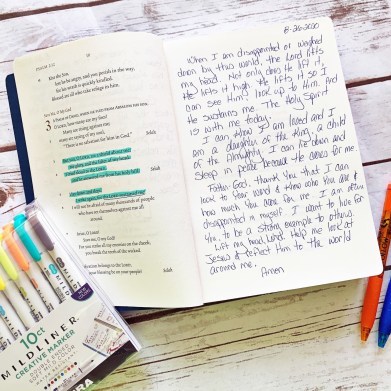 PSALM 2:12
Kiss the Son,
lest he be angry, and you perish in the way,
for his wrath is quickly kindled.
Blessed are all who take refuge in him.
Save Me, O My God
A PSALM OF DAVID, WHEN HE FLED FROM ABSALOM HIS SON.
O LORD, how many are my foes!
Many are rising against me;
many are saying of my soul,
"There is no salvation for him in God." Selah
But you, O LORD, are a shield about me,
my glory, and the lifter of my head.
I cried aloud to the LORD,
and he answered me from his holy hill. Selah
I lay down and slept;
I woke again, for the LORD sustained me.
I will not be afraid of many thousands of people
who have set themselves against me all
around.
Arise, O LORD!
Save me, O my God!
For you strike all my enemies on the cheek;
you break the teeth of the wicked.
Salvation belongs to the LORD;
your blessing be on your people! Selah
8-26-2020
When I am disappointed or weighed
down by this world, the Lord lifts
my head. Not only does He lift it,
He lifts it high. He lifts it so I
can see Him; look up to Him. And
He sustains me. The Holy Spirit
is with me today.
I can know I am loved and I
am a daughter of the King, a child
of the Almighty. I can lie down and
sleep in peace because He cares for me.
Father God, thank You that I can
look to Your word & know who You are &
how much You care for me. I am often
disappointed in myself. I want to live for
You, to be a strong example to others.
Lift my head, Lord. Help me look at
Jesus & reflect Him to the world
around me.
Amen
10ct
MILDLINER
CREATIVE MARKER
ZEBRA